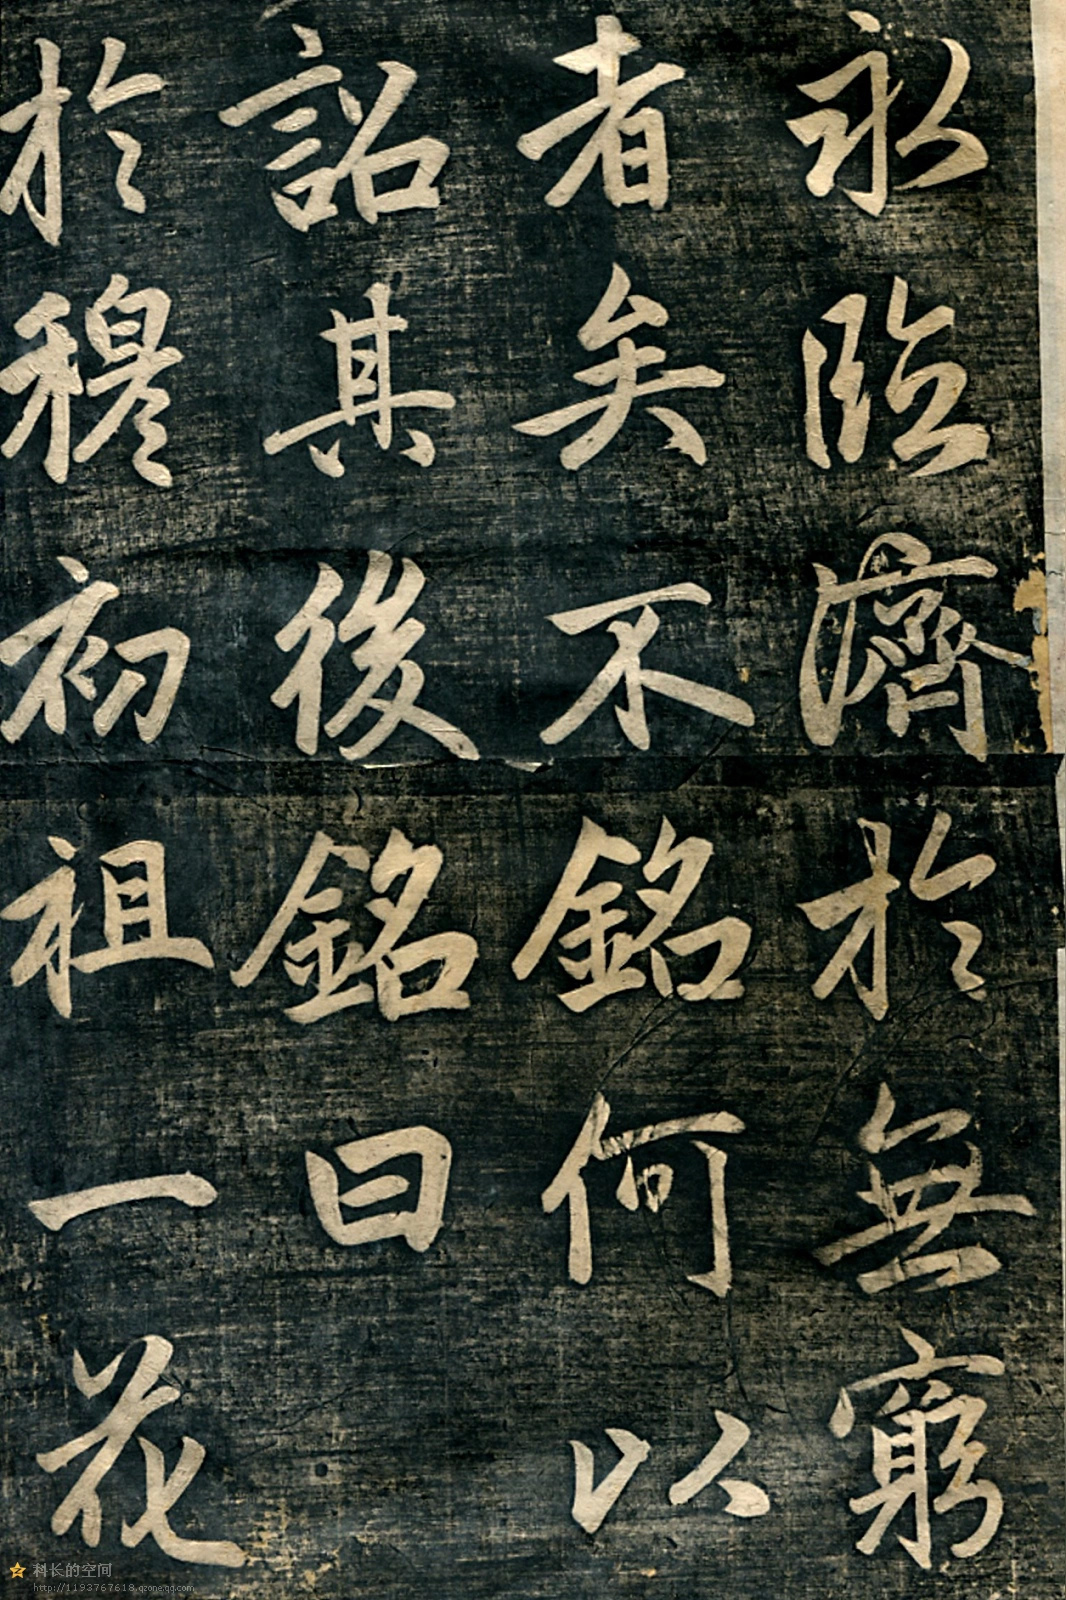 永臨濟於無窮
者矣不銘何以
詔其後銘曰
於穆初祖一花
科长的空间
http://1193767618.qzone.qq.com